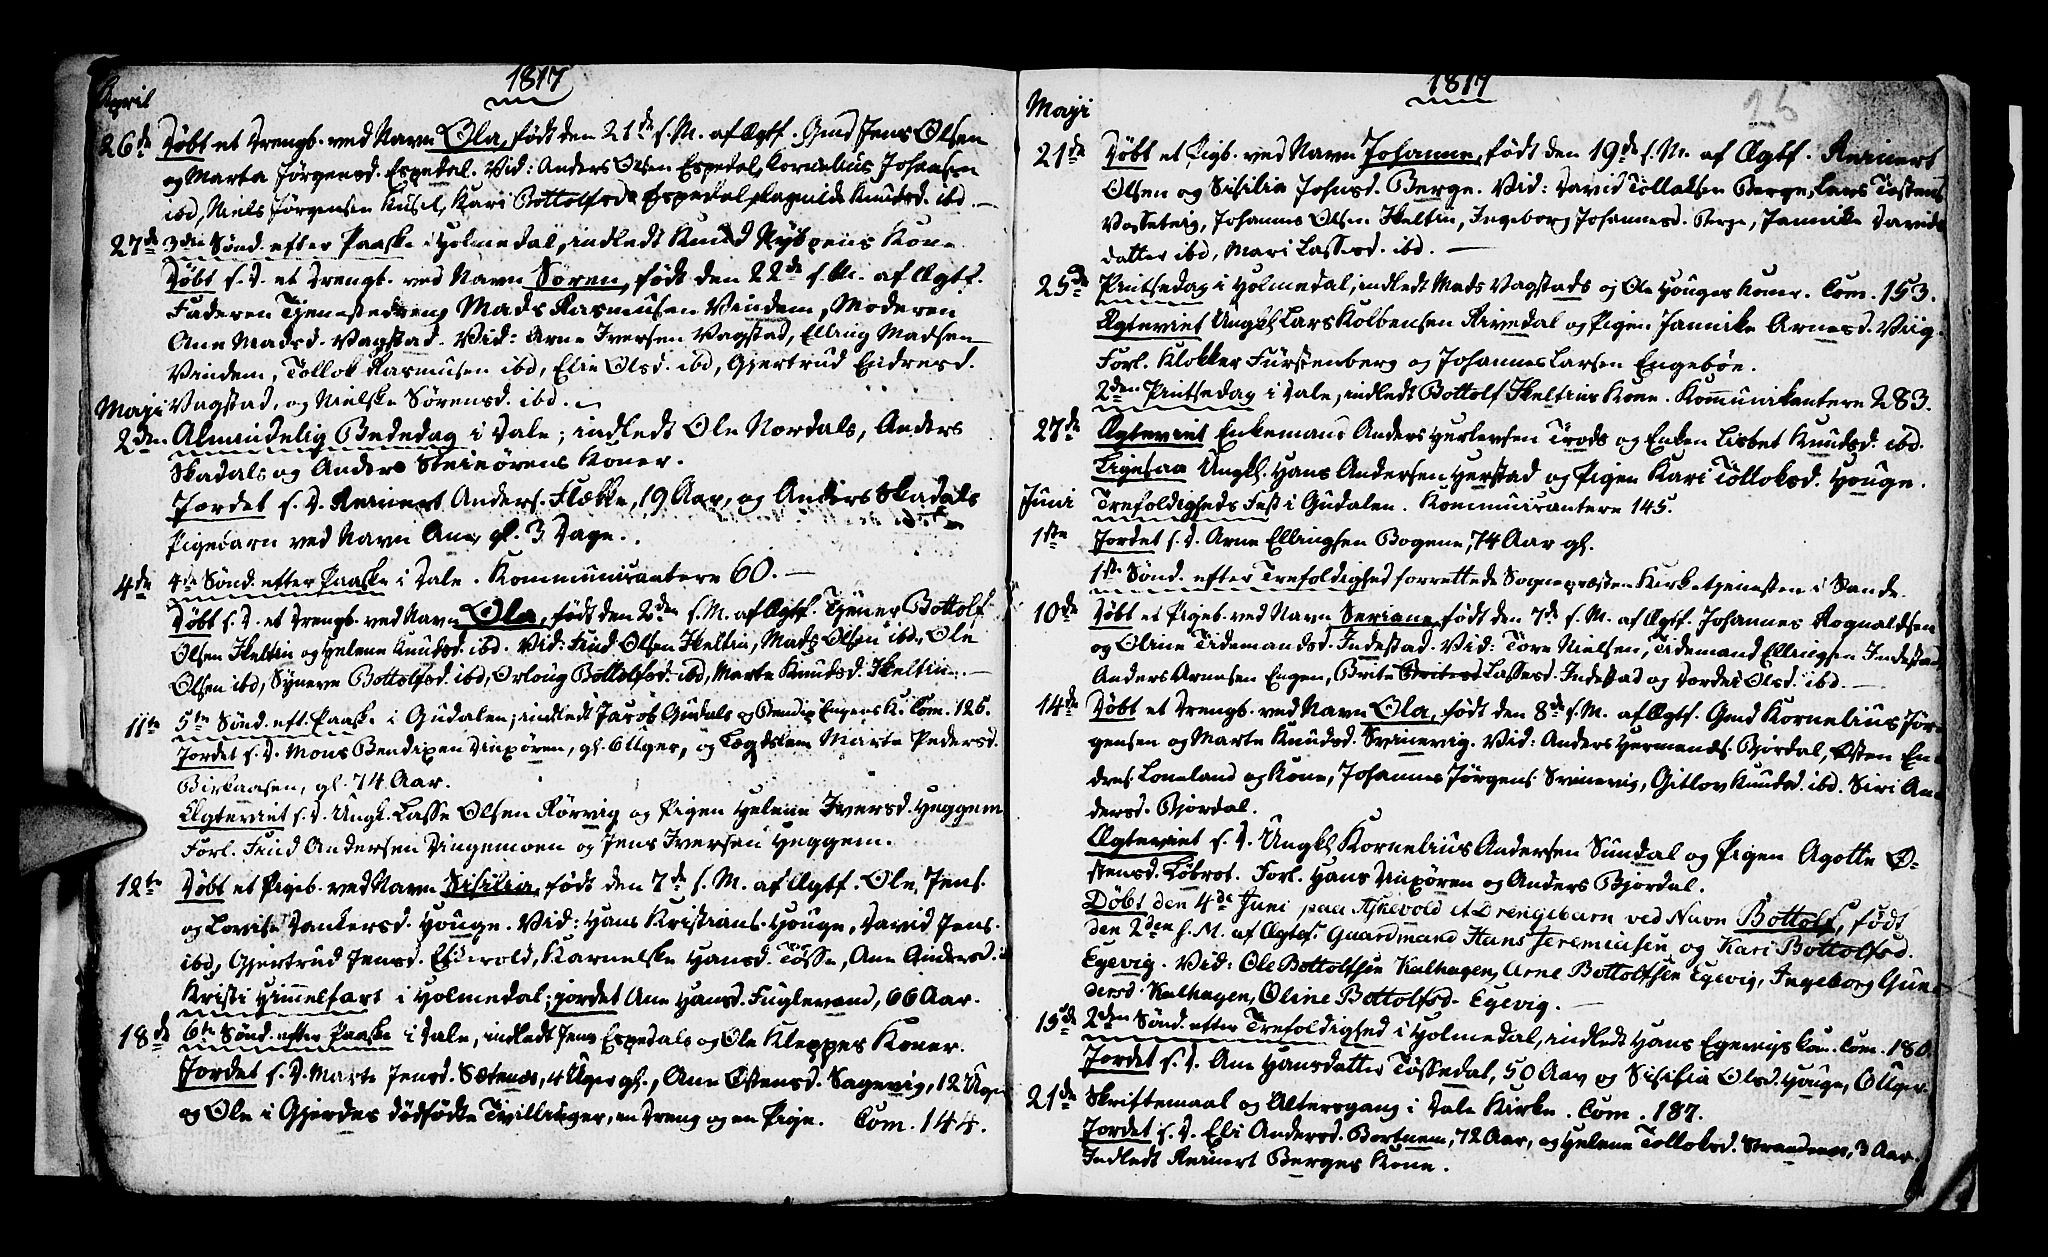 1817
April
26de Døbt et Drengb. ved Navn Ola, født den 21de s. M. af Ægtf. Gmd Jens Olsen
og Marta Jørgensd. Espedal. Vid: Anders Olsen Espedal, Kornelius Johansen
ibd, Niels Jørgensen Kusel, Kari Bottolfsd. Espedal, Ragnilde Knudsd. ibd.
27de 3die Sønd. efter Paaske i Holmedal, indledt Knud Kone
Døbt s. D. et Drengb. ved Navn Søren, født den 22de s. M. af Ægtf.
Faderen Tjenestedreng Mads Rasmusen Vindem, Moderen
Ane Madsd. Vagstad. Vid: Arne Iversen Vagstad, Elling Madsen
Vindem, Tollok Rasmusen ibd, Elin Olsd. ibd, Gjertrud Endresd.
Maji Vagstad, og Nielske Sørensd. ibd.
2den Almindelig Bededag i Dale; indledt Ole Nordals, Anders
Skadals og Anders Steinørens Koner.
Jordet s. D. Reinert Anders. Flække, 19 Aar, og Anders Skadals
Pigebarn ved Navn Ane, gl. 3 Dage.
4de 4de Sønd. efter Paaske i Dale. Kommunicantere 60.
Døbt s. D. et Drengb. ved Navn Ola, født den 2den s. M. af Ægtf. Tjener Bottolf
Olsen Skeltin og Helene Knudsd. ibd. Vid: Find Olsen Skeltin, Mads Olsen ibd, Ole
Olsen ibd, Synneve Bottolfsd. ibd, Orloug Bottolfsd. ibd, Marte Knudsd. Skeltin.
11te 5te Sønd. eft. Paaske i Gudalen; indledt Jacob Gudals og Bendix Engens K. Com. 126.
Jordet s. D. Mons Bendixen Dinxøren, gl. 6 Uger, og Lægdslem Marte Pedersd.
Birkaasen, gl. 74 Aar.
Ægteviet s. D. Ungk. Lasse Olsen Rørvig og Pigen Helene Iversd. Heggem
Forl. Find Andersen Dingemoen og Jens Iversen Heggem.
12te Døbt et Pigeb. ved Navn Sisilia, født den 7de s. M. af Ægtf. Ole Jens.
og Lovise Dankersd. Houge. Vid: Hans Kristians. Houge, David Jens.
ibd, Gjertrud Jensd. Eskevold, Karnelske Hansd. Tosse, Ane Andersd.
Kristi Himmelfart i Holmedal; jordet Ane Hansd. Fuglevand, 66 Aar.
18de 6te Sønd. efter Paaske i Dale, indledt Jens Espedals og Ole Kleppes Koner.
Jordet s. D. Marte Jensd. Sætenes, 4 Uger gl., Ane Østensd. Sagevig, 12 Uger
og Ole i Gjerdes dødfødte Tvillinger, en Dreng og en Pige. Com. 144.
1817
25
Maji
21de Døbt et Pigb. ved Navn Johanne, født den 19de s. M. af Ægtf. Reinert
Olsen og Sisilia Johnsd. Berge. Vid: David Tollaksen Berge, Lars Tostens
Vasseteig, Johannes Olsen Skeltin, Ingeborg Johannesd. Berge, Jannike Davids
datter ibd, Mari Lassesd. ibd.
25de Pintsedag i Holmedal, indledt Mads Vagstads og Ole Houges Koner. Com. 153.
Ægteviet Ungkl Lars Kolbensen Rivedal og Pigen Jannike Arnesd. Viig.
Forl. Klokker Fürstenberg og Johannes Larsen Engebøe.
2den Pintsedag i Dale, indledt Bottolf Skeltins Kone. Kommunikantere 283.
27de Ægteviet Enkemand Anders Herlevsen Trods og Enken Lisbet Knudsd. ibd.
Ligesaa Ungkl. Hans Andersen Herstad og Pigen Kari Tolloksd. Houge.
Juni Trefoldigheds Fest i Gudalen. Kommunicantere 145.
1ste Jordet s. D. Arne Ellingsen Bogene, 74 Aar gl.
1ste Sønd. efter Trefoldighed forrettede Sognepræsten Kirketjenesten i Sande.
10de Døbt et Pigeb. ved Navn Seriane, født den 7de s. M. af Ægtf. Johannes Rognaldsen
og Oline Tidemandsd. Indestad. Vid: Tore Nielsen, Tidemand Ellingsen Indestad,
Anders Arnesen Engen, Brite Lassesd. Indestad og Dordei Olsd. ibd.
14de Døbt et Drengb. ved Navn Ola, født den 8de s. M. af Ægtf. Gmd Kornelius Jør-
gensen og Marte Knudsd. Svinevig. Vid: Anders Hermends. Bjordal, Østen En-
dres. Loneland og Kone, Johannes Jørgens. Svinevig, Gitlov Knudsd. ibd. Siri An-
dersd. Bjordal.
Ægteviet s. D. Ungkl Kornelius Andersen Sundal og Pigen Agotte Ø-
stensd. Løbrot. Forl. Hans Dinxøren og Anders Bjordal.
Døbt den 4de Juni paa Askevold et Drengebarn ved Navn Bottolf, født
den 2den s. M. af Ægtf. Guardmand Hans Jeremiasen og Kari Bottolfsd.
Egevig. Vid: Ole Bottolfsen Kalhagen, Arne Bottolfsen Egevig, Ingeborg Gun-
dersd. Kalhagen, Oline Bottolfsd. Egevig.
15de 2den Sønd. efter Trefoldighed i Holmedal, indledt Hans Egevigs Kone. Com. 180.
Jordet s. D. Ane Hansdatter Tossedal, 50 Aar og Sisilia Olsd. Houge, 6 Uger.
21de Skriftemaal og Altergang i Dale Kirke. Com. 187.
Jordet s. D. Eli Andersd. Bortnem, 72 Aar, og Helene Tolloksd. Strandenes, 3 Aar.
Indledt Reinert Berges Kone.